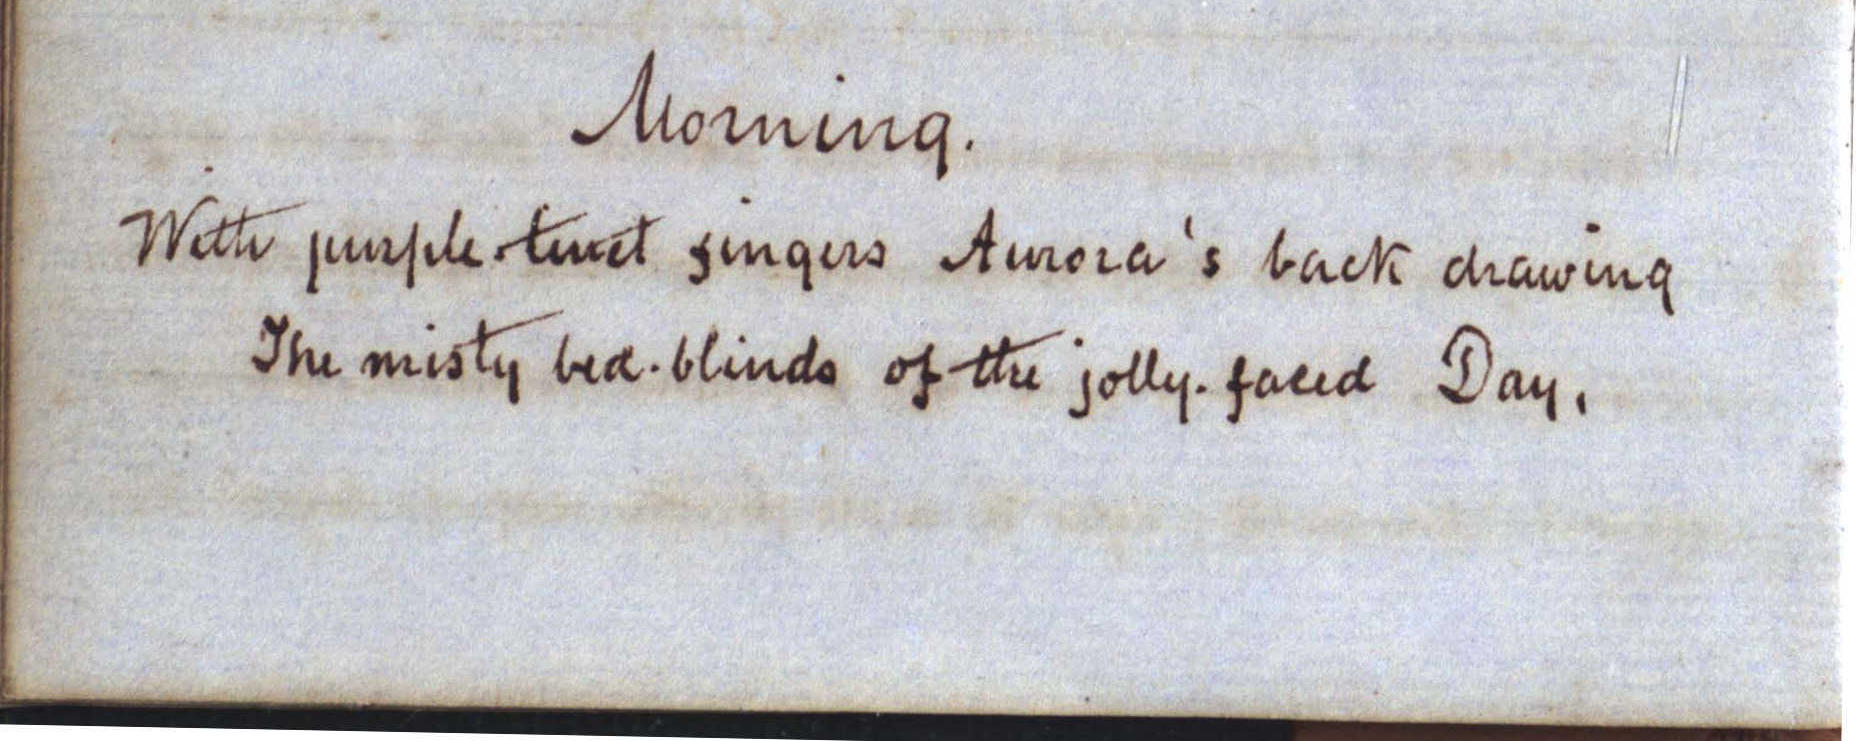 Morning.
With purple-tinct fingers Aurora's back drawing
The misty bed-blinds of the jolly-faced Day.